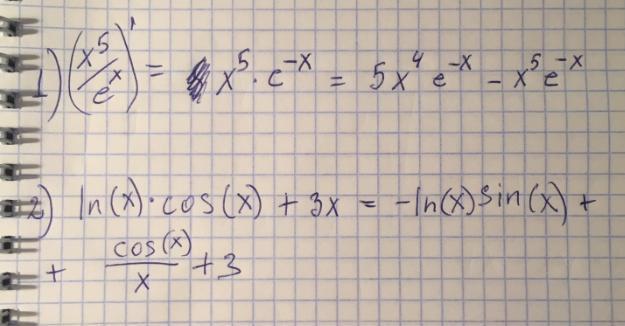 1) (x⁵/eˣ)' = x⁵ · e⁻ˣ = 5x⁴ e⁻ˣ - x⁵e⁻ˣ
2) ln(x)·cos(x) + 3x = -ln(x)sin(x) +
+ cos(x)/x + 3